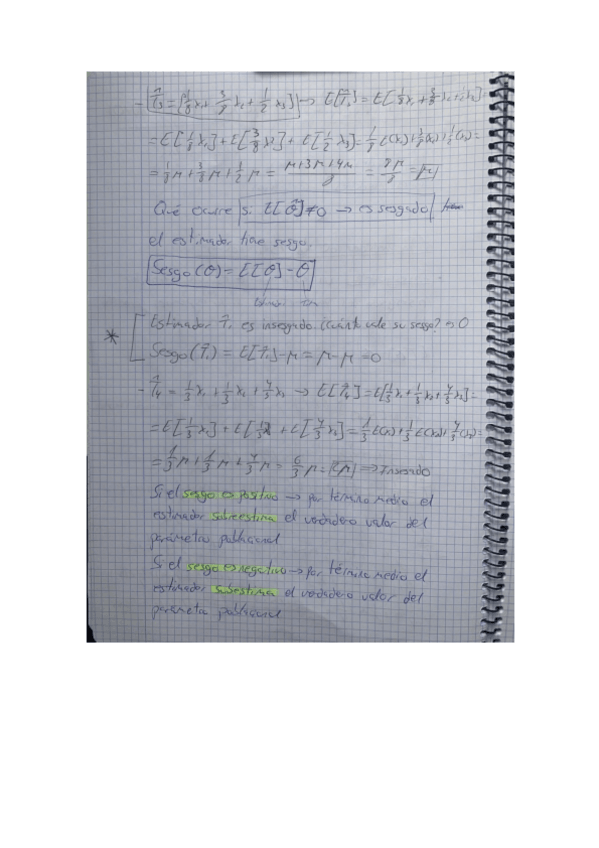 - T̂₃ = [1/8 x₁ + 3/8 x₂ + 1/2 x₃] → E[T̂₃] = E[1/8 x₁ + 3/8 x₂ + 1/2 x₃]
= E[1/8 x₁] + E[3/8 x₂] + E[1/2 x₃] = 1/8 E(x₁) + 3/8 E(x₂) + 1/2 E(x₃) =
= 1/8 μ + 3/8 μ + 1/2 μ = μ+3μ+4μ / 8 = 8μ/8 = μ
Qué ocurre si E[θ̂] ≠ θ → es sesgado
el estimador tiene sesgo.
Sesgo (θ) = E[θ̂] - θ
* Estimador T̂₁ es insesgado ¿cuánto vale su sesgo? → 0
Sesgo (T̂₁) = E[T̂₁] - μ = μ - μ = 0
- T̂₄ = 1/3 x₁ + 1/3 x₂ + 4/3 x₃ → E[T̂₄] = E[1/3 x₁ + 1/3 x₂ + 4/3 x₃] =
= E[1/3 x₁] + E[1/3 x₂] + E[4/3 x₃] = 1/3 E(x₁) + 1/3 E(x₂) + 4/3 E(x₃) =
= 1/3 μ + 1/3 μ + 4/3 μ = 6/3 μ = 2μ ⇒
Si el sesgo es positivo → por término medio el
estimador sobreestima el verdadero valor del
parámetro poblacional
Si el sesgo es negativo → por término medio el
estimador subestima el verdadero valor del
parámetro poblacional